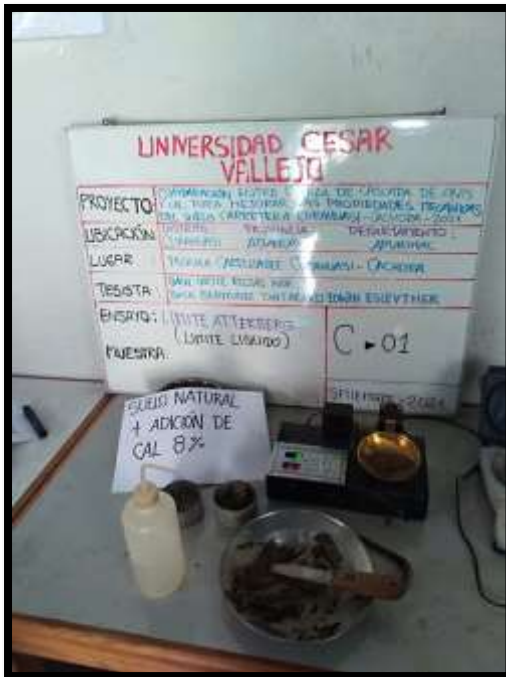 UNIVERSIDAD CESAR
VALLEJO
PROYECTO: COMPARACIÓN ENTRE DE CASCARA DE
Y CAL PARA MEJORAR LAS PROPIEDADES MECANICAS
DEL SUELO CARRETERA CURAHUASI-CACHORA-2021
UBICACIÓN DISTRITO: PROVINCIA: DEPARTAMENTO:
CURAHUASI ABANCAY APURIMAC
LUGAR TROCHA CARROZABLE CURAHUASI-CACHORA
TESISTA:
ENSAYO: LIMITE ATTERBERG
(LIMITE LIQUIDO)
MUESTRA:
C-01
SETIEMBRE-2021
SUELO NATURAL
+ ADICIÓN DE
CAL 8%